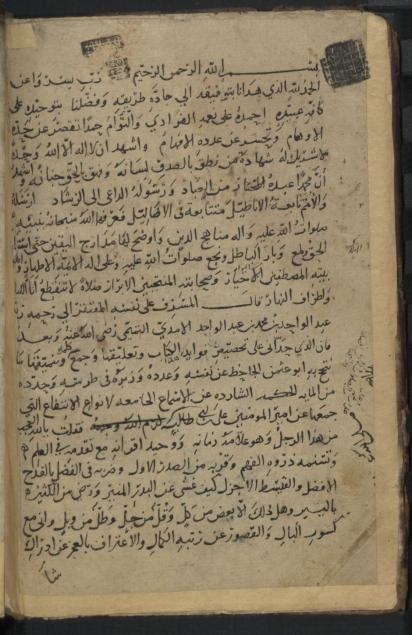 بسم الله الرحمن الرحيم رب يسر واعن
الحمد لله الذي هدانا بتوفيقه الي جادة طريقه وفضلنا بتوحيده على
كافة عبيده احمده على نعمه الفرادى والتؤام حمدا تقصر عن حده
الاوهام وتحسر عن عدده الافهام واشهد ان لا اله الا الله وحده
لا شريك له شهادة من نطق بالصدق لسانه جنانه واشهد
ان محمدا عبده من العباد ورسوله الداعي الى الرشاد ارسله
والامم الاباطيل متتابعة في الاضاليل
صلوات الله عليه وآله مناهج الدين واوضح لها مدارج اليقين حتى
الحق ولمع وباد الباطل صلوات الله عليه وعلى اله الائمة الاطهار
بيته المصطفين الاخيار وصحابته المنتجبين الابرار صلاة لا تنقطع اناء الليل
واطراف النهار قال المسرف على نفسه المفتقر الى رحمة ربه
عبد الواحد بن محمد بن عبد الواحد الآمدي التميمي رضي الله عنه وبعد
فان الذي حداني على تخصيص فوائد هذا الكتاب وتعليقها وجمع
تبجح به ابو عثمن الجاحظ عن نفسه وعدده وزبره في طرسه وحدده
من المائة الحكمة الشاردة عن الاسماع الجامعة لانواع الانتفاع التي
جمعها عن امير المومنين علي بن ابي طالب فقلت يا لله العجب
من هذا الرجل وهو علامة زمانه ووحيد اقرانه مع تقدمه في العلم
وتسنمه ذروة الفهم وقربه من الصدر الاول وضربه في الفضل بالقدح
الافضل والقسط الاجزل كيف غشي عن البدر المنير ورضي من الكثير
باليسير وهل ذلك الا بعض من كل وقل من جل وطل من وبل واني مع
كسوف البال والقصور عن رتبة الكمال والاعتراف بالعجز عن ادراك
شأ